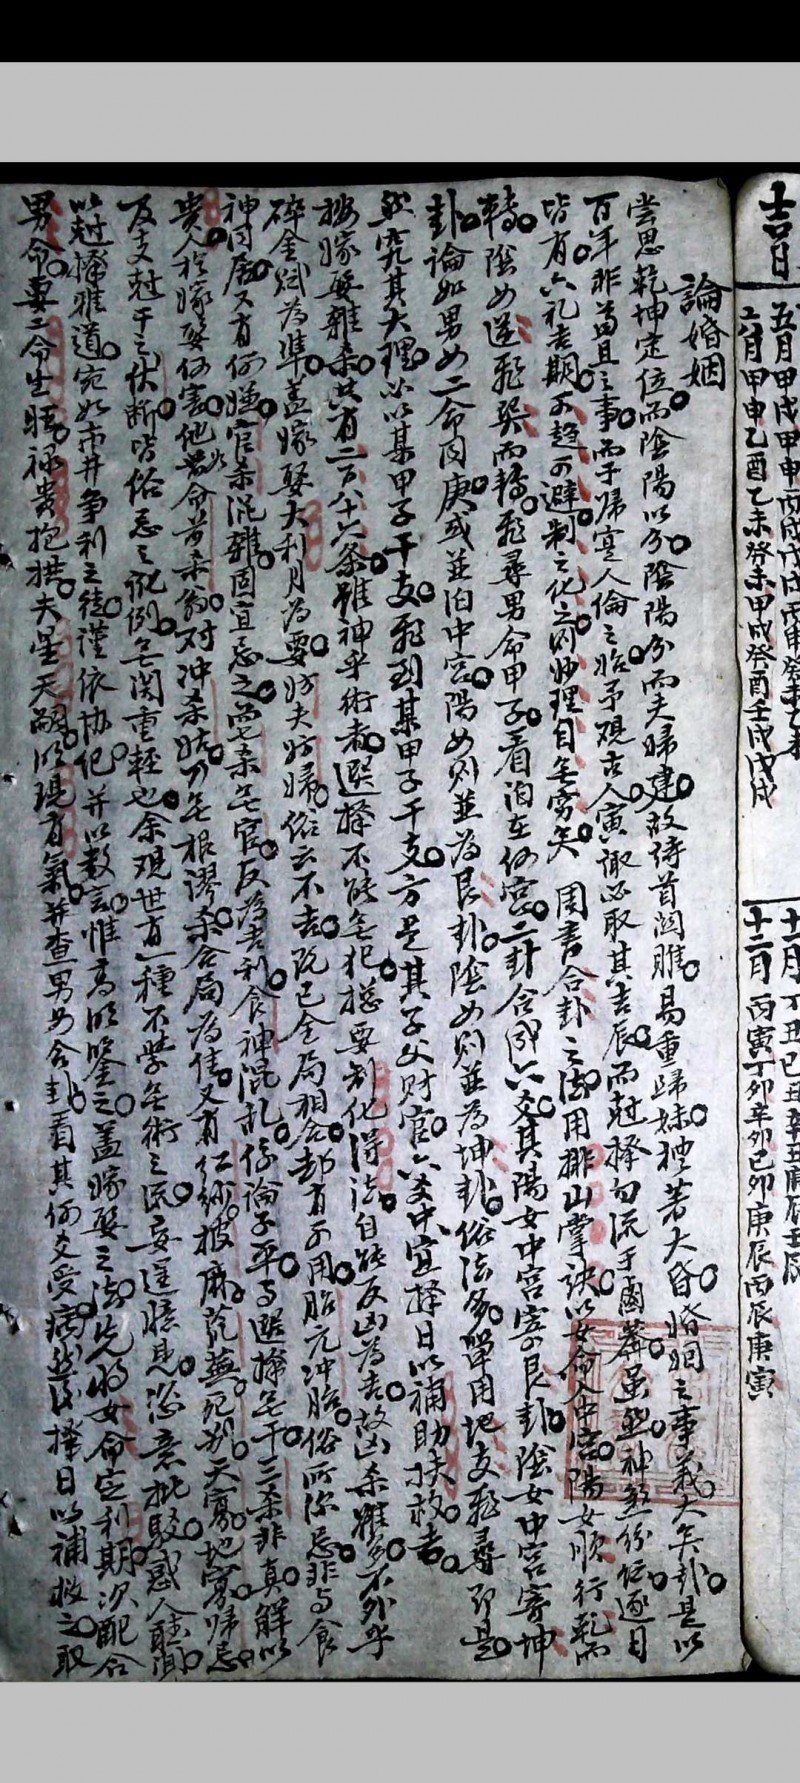 吉日
五月 甲戌 甲申 丙戌 戊戌 丙申 癸未 乙未
六月 甲申 乙酉 乙未 癸未 甲戌 癸酉 壬戌 戊戌
十一月 丁丑 己丑 辛丑 庚辰 壬辰
十二月 丙寅 丁卯 辛卯 己卯 庚辰 丙辰 庚寅
論婚姻
嘗思乾坤定位而陰陽以分陰陽分而夫婦建故詩首關雎易重歸妹禮著大昏婚姻之事義大矣哉是以
百年非苟且之事而于歸寔人倫之始予观古人寅諏必取其吉辰而尅擇勿流于鹵莽虽然神煞份紜逐日
皆有六礼吉期可趋可避制之化之则妙理自無穷矣 周書合卦之法用排山掌訣以女命入中宮陽女順行乾而
轉陰女逆飛巽而轉飛尋男命甲子看泊在何宮二卦合成六爻其陽女中宮寄艮卦陰女中宮寄坤
卦論如男女二命同庚或並泊中宮陽女则並為艮卦陰女则並為坤卦俗法多單用地支飛尋即是
然究其大理必以某甲子干支飛到某甲子干支方是其子父财官六爻中宜擇日以補助扶救者
按嫁娶雜杀共有二百八十六条雖神乎術者選擇不能無犯總要制化得法自能反凶為吉故凶杀雖多不外乎
碎金赋為準盖嫁娶大利月為要妨夫妨婦俗云不吉既已全局相合却有可用胎元冲胎俗所深忌非与食
神同居又有何嫌官杀混雜固宜忌之而七杀無官反為吉利食神混乱係論子平与選擇無干三杀非真解以
貴人於嫁娶何害他若命前杀翁对冲杀姑乃無根謬杀合局為佳又有红紗披麻荒蕪死别天寡地寡歸忌
及支尅干之伏断皆俗忌之訛例無関重輕也余观世有一種不学無術之流妄逞臆見恣意批駁惑人聽聞
以尅擇雅道宛如市井争利之徒謹依协纪并以数言惟高明鉴之盖嫁娶之法先将女命定利期次配合
男命要二命生旺禄貴抱拱夫星天嗣明現有氣并查男女合卦看其何爻受病然後擇日以補救之取